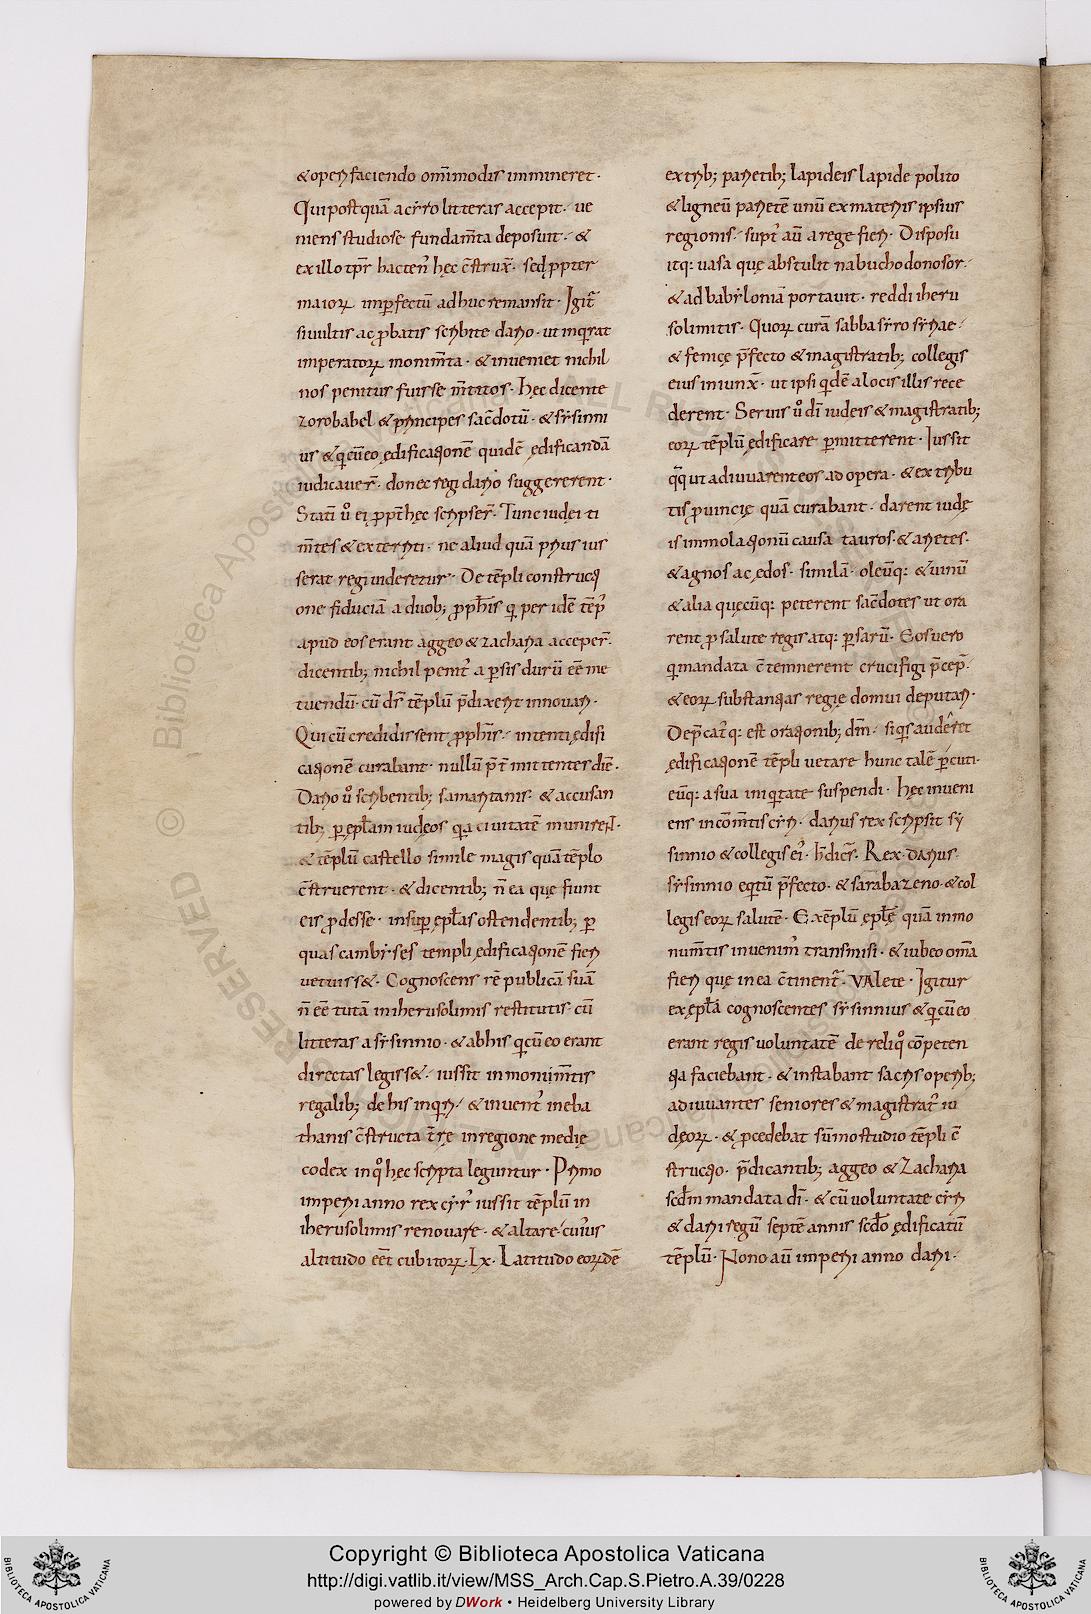 & operi faciendo om̄imodis immineret·
Qui postquā a cẏro litteras accepit·' ue
niens studiose fundam̄ta deposuit·' &
ex illo tp̄r hacten᾿ hęc c̄strux̄· sed ꝓpter
maiorꝝ imꝑfectū adhuc remansit· Igit᷑
si uultis ac ꝓbatis scribite dario· ut inq̇rat
imperatorꝝ monim̄ta· & inueniet nichil
nos penitus fuisse m̄titos· Hęc dicente
zorobabel & principes sacͤdotū· & sẏsinni
us & q̇ cū eo ędificationē quidē ędificandā
iudicauer̄· donec regi dario suggererent·
Statī ů ei ꝓpt̄ hęc scripser̄· Tunc iudęi ti
m̄tes & exterriti· ne aliud quā prius ius
serat regi uideretur· De tēpli constructi
one fiduciā a duob; ꝓph̄is q̇ per idē tēp᾿
apud eos erant aggeo & zacharia acceper̄·
dicentib; nichil penit᾿ a ꝑsis durū eē̄ me
tuendū· cū ds̄ tēplū p̄dixerit innouari·
Qui cū credidissent ꝓph̄is·' intenti ędifi
cationē curabant· nullū p̄t̄mittentes diē·
Dario ů scribentib; samaritanis· & accusan
tib; ꝑ ep̄łam iudęos q̇a ciuitatē munirent·
& tēplū castello simile magis quā tēplo
c̄struerent· & dicentib; n̄ ea quę fiunt
eis ꝓdesse· insuꝑ ep̄łas ostendentib; ꝑ
quas cambẏses templi ędificationē fieri
uetuiss&· Cognoscens rē publicā suā
n̄ eē̄ tutā in iherusolimis restitutis· cū
litteras a sẏsinnio· & ab his q̇ cū eo erant
directas legiss&·' iussit in monim̄tis
regalib; de his inq̇ri·' & inuent᾿ in eba
thanis c̄structa t̄rę in regione medię
codex in q̊ hęc scripta leguntur· Primo
imperii anno rex cẏr᾿ iussit tēplū in
iherusolimis renouare· & altare·' cuius
altitudo eēt cubitorꝝ·lx· Latitudo eorꝝdē
ex trib; parietib; lapideis lapide polito
& ligneū parietē unū ex materiis ipsius
regionis·' supt̄ aū a rege fieri· Disposu
itq: uasa quę abstulit nabuchodonosor·'
& ad babẏloniā portauit· reddi iheru
solimitis· Quorꝝ curā sabbasẏro sẏriae·'
& fenicę p̄fecto & magistratib; collegis
eius iniunx̄· ut ipsi q̇dē a locis illis rece
derent· Seruis ů dī iudeis & magistratib;
eorꝝ tēplū ędificare ꝑmitterent· Iussit
q̄q ut adiuuarent eos ad opera· & ex tribu
tis ꝓuincię quā curabant· darent iudę
is immolationū causa tauros· & arietes·
& agnos ac ędos· similā· oleūq: & uinū
& alia quęcūq: peterent sacͤdotes ut ora
rent ꝓ salute regis atq: ꝑsarū· Eos uero
q̇ mandata c̄temnerent crucifigi p̄cep̄·
& eorꝝ substantias regię domui deputari·
Dep̄cat᾿q: est orationib; dm̄·' si q̇s auderet
ędificationē tēpli uetare hunc talē ꝑcuti·
eūq: a sua iniq̇tate suspendi· Hęc inueni
ens in com̄tis cẏri· darius rex scripsit sẏ
sinnio & collegis ei᾿· h̄ dicēs· Rex· Darius·
sẏsinnio eq̇tū p̄fecto· & sarabazeno· & col
legis eorꝝ salutē· Exēplū ep̄łę quā in mo
num̄tis inuenim᾿ transmisi· & iubeo om̄a
fieri quę in ea c̄tinent᷑· VAlete· Igitur
ex ep̄ła cognoscentes sẏsinnius & q̇ cū eo
erant regis uoluntatē de reliq̊ cōpeten
tia faciebant· & instabant sacris operib;
adiuuantes seniores & magistrat᾿ iu
dęorꝝ· & ꝓcedebat sūmo studio tēpli c̄
structio· p̄dicantib; aggeo & Zacharia
scd̄m mandata dī· & cū uoluntate cẏri
& darii regū septē annis scd̄o ędificatū
tēplū· Nono aū imperii anno darii·
Copyright © Biblioteca Apostolica Vaticana
http://digi.vatlib.it/view/MSS_Arch.Cap.S.Pietro.A.39/0228
powered by DWork • Heidelberg University Library